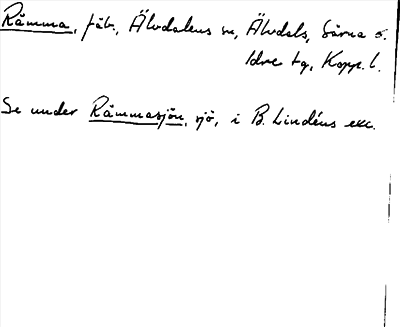 Råmma, fäb., Älvdalens sn, Älvdals, Särna o.
Idre tg, Kopp. l.
Se under Råmmasjön, sjö, i B. Lindéns exc.